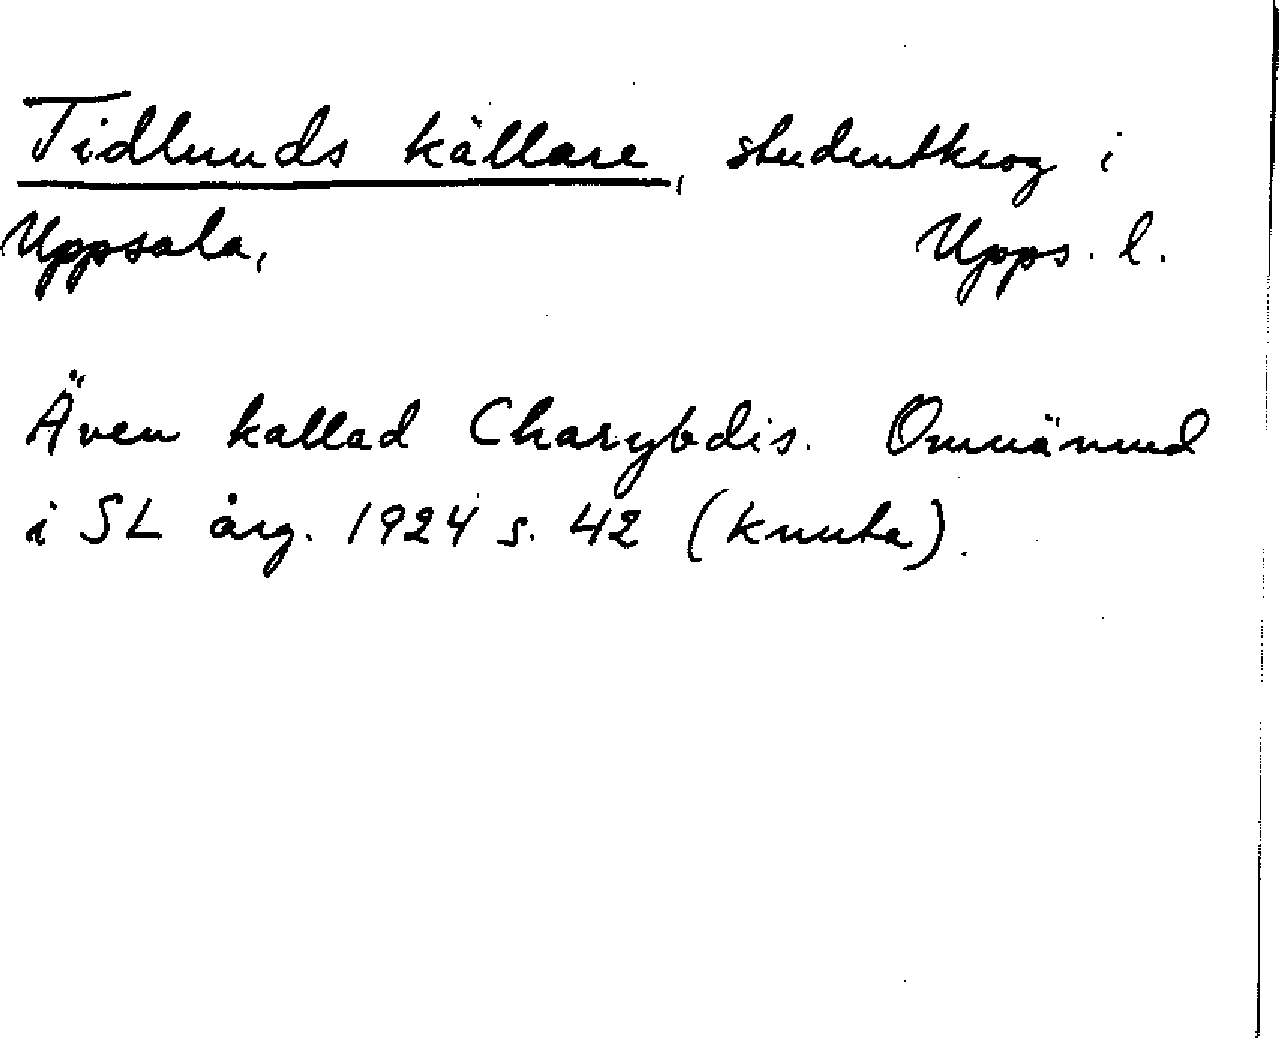 Tidlunds källare, studentkrog i
Uppsala, Upps. l.
Även kallad Charybdis. Omnämnd
i SL årg. 1924 s. 42 (Knuta).